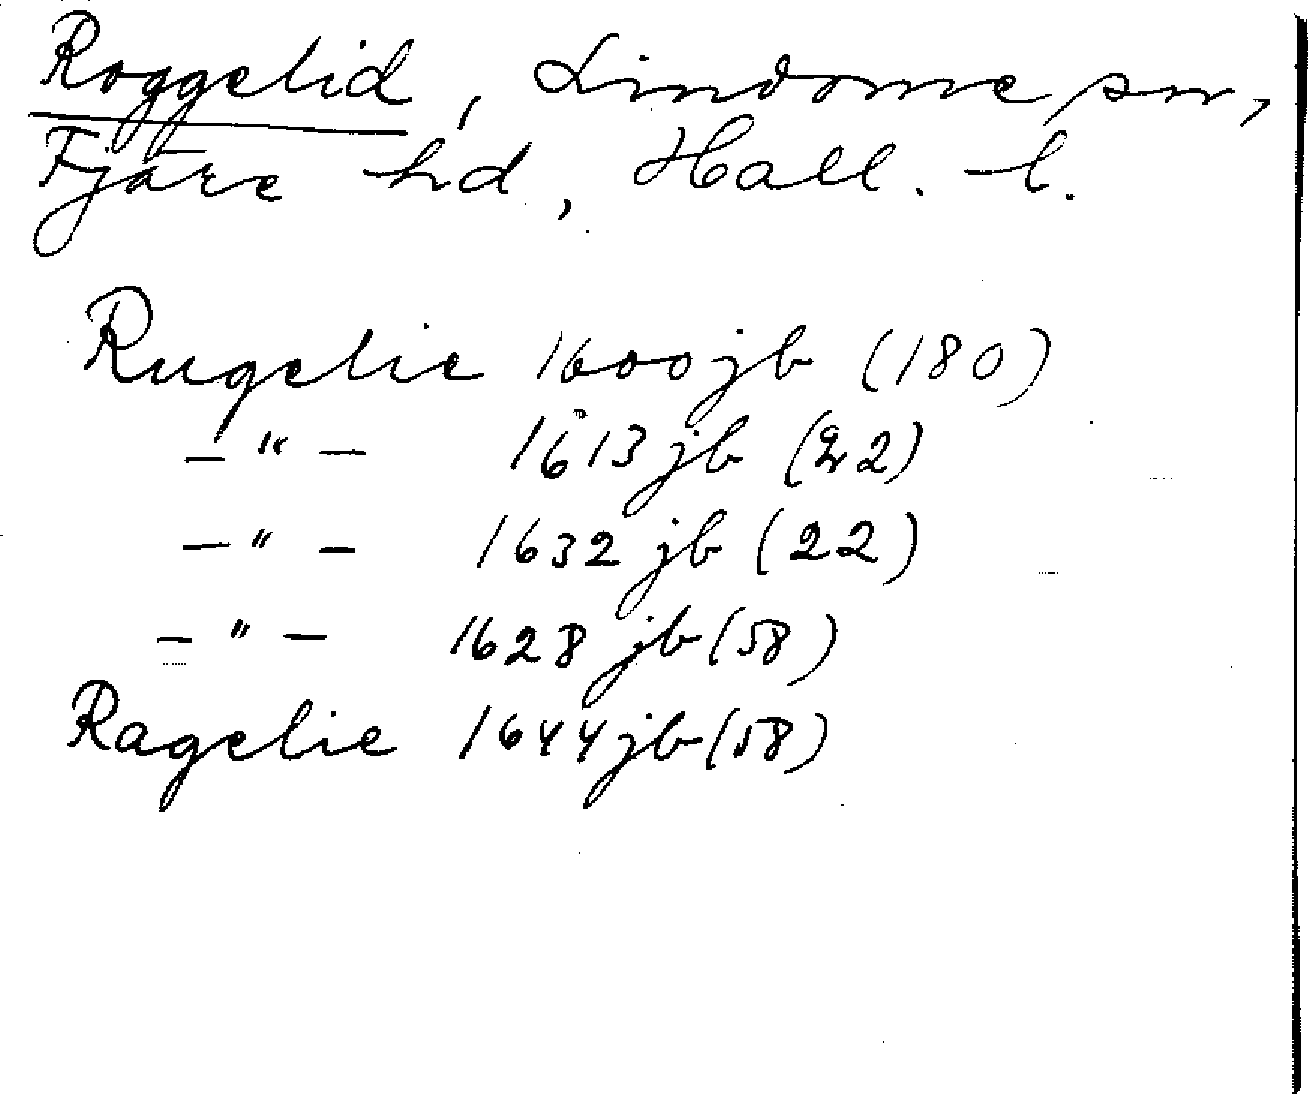 Roggelid, Lindome sn,
Fjäre hd, Hall. l.
Rugelie 1600 jb (180)
—"— 1613 jb (22)
—"— 1632 jb (22)
—"— 1628 jb (58)
Ragelie 1644 jb (58)